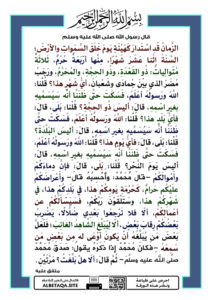 بسم الله الرحمن الرحيم
قال رسول الله صلى الله عليه وسلم
الزمان قد استدار كهيئته يوم خلق السموات والأرض؛
السنة اثنا عشر شهرا، منها أربعة حرم، ثلاثة
متواليات: ذو القعدة، وذو الحجة، والمحرم، ورجب
مضر الذي بين جمادى وشعبان، أي شهر هذا؟ قلنا:
الله ورسوله أعلم، فسكت حتى ظننا أنه سيسميه
بغير اسمه، قال: أليس ذو الحجة؟ قلنا: بلى، قال:
فأي بلد هذا؟ قلنا: الله ورسوله أعلم، فسكت حتى
ظننا أنه سيسميه بغير اسمه، قال: أليس البلدة؟
قلنا: بلى، قال: فأي يوم هذا؟ قلنا: الله ورسوله
أعلم، فسكت حتى ظننا أنه سيسميه بغير اسمه، قال:
أليس يوم النحر؟ قلنا: بلى، قال: فإن دماءكم
وأموالكم –قال محمد: وأحسبه قال– وأعراضكم
عليكم حرام، كحرمة يومكم هذا، في بلدكم هذا، في
شهركم هذا، وستلقون ربكم، فسيسألكم عن
أعمالكم، ألا فلا ترجعوا بعدي ضلالا، يضرب
بعضكم رقاب بعض، ألا ليبلغ الشاهد الغائب؛ فلعل
بعض من يبلغه أن يكون أوعى له من بعض من
سمعه –فكان محمد إذا ذكره يقول: صدق محمد
صلى الله عليه وسلم– ثم قال: ألا هل بلغت؟ مرتين.
متفق عليه
ALBETAQA.SITE